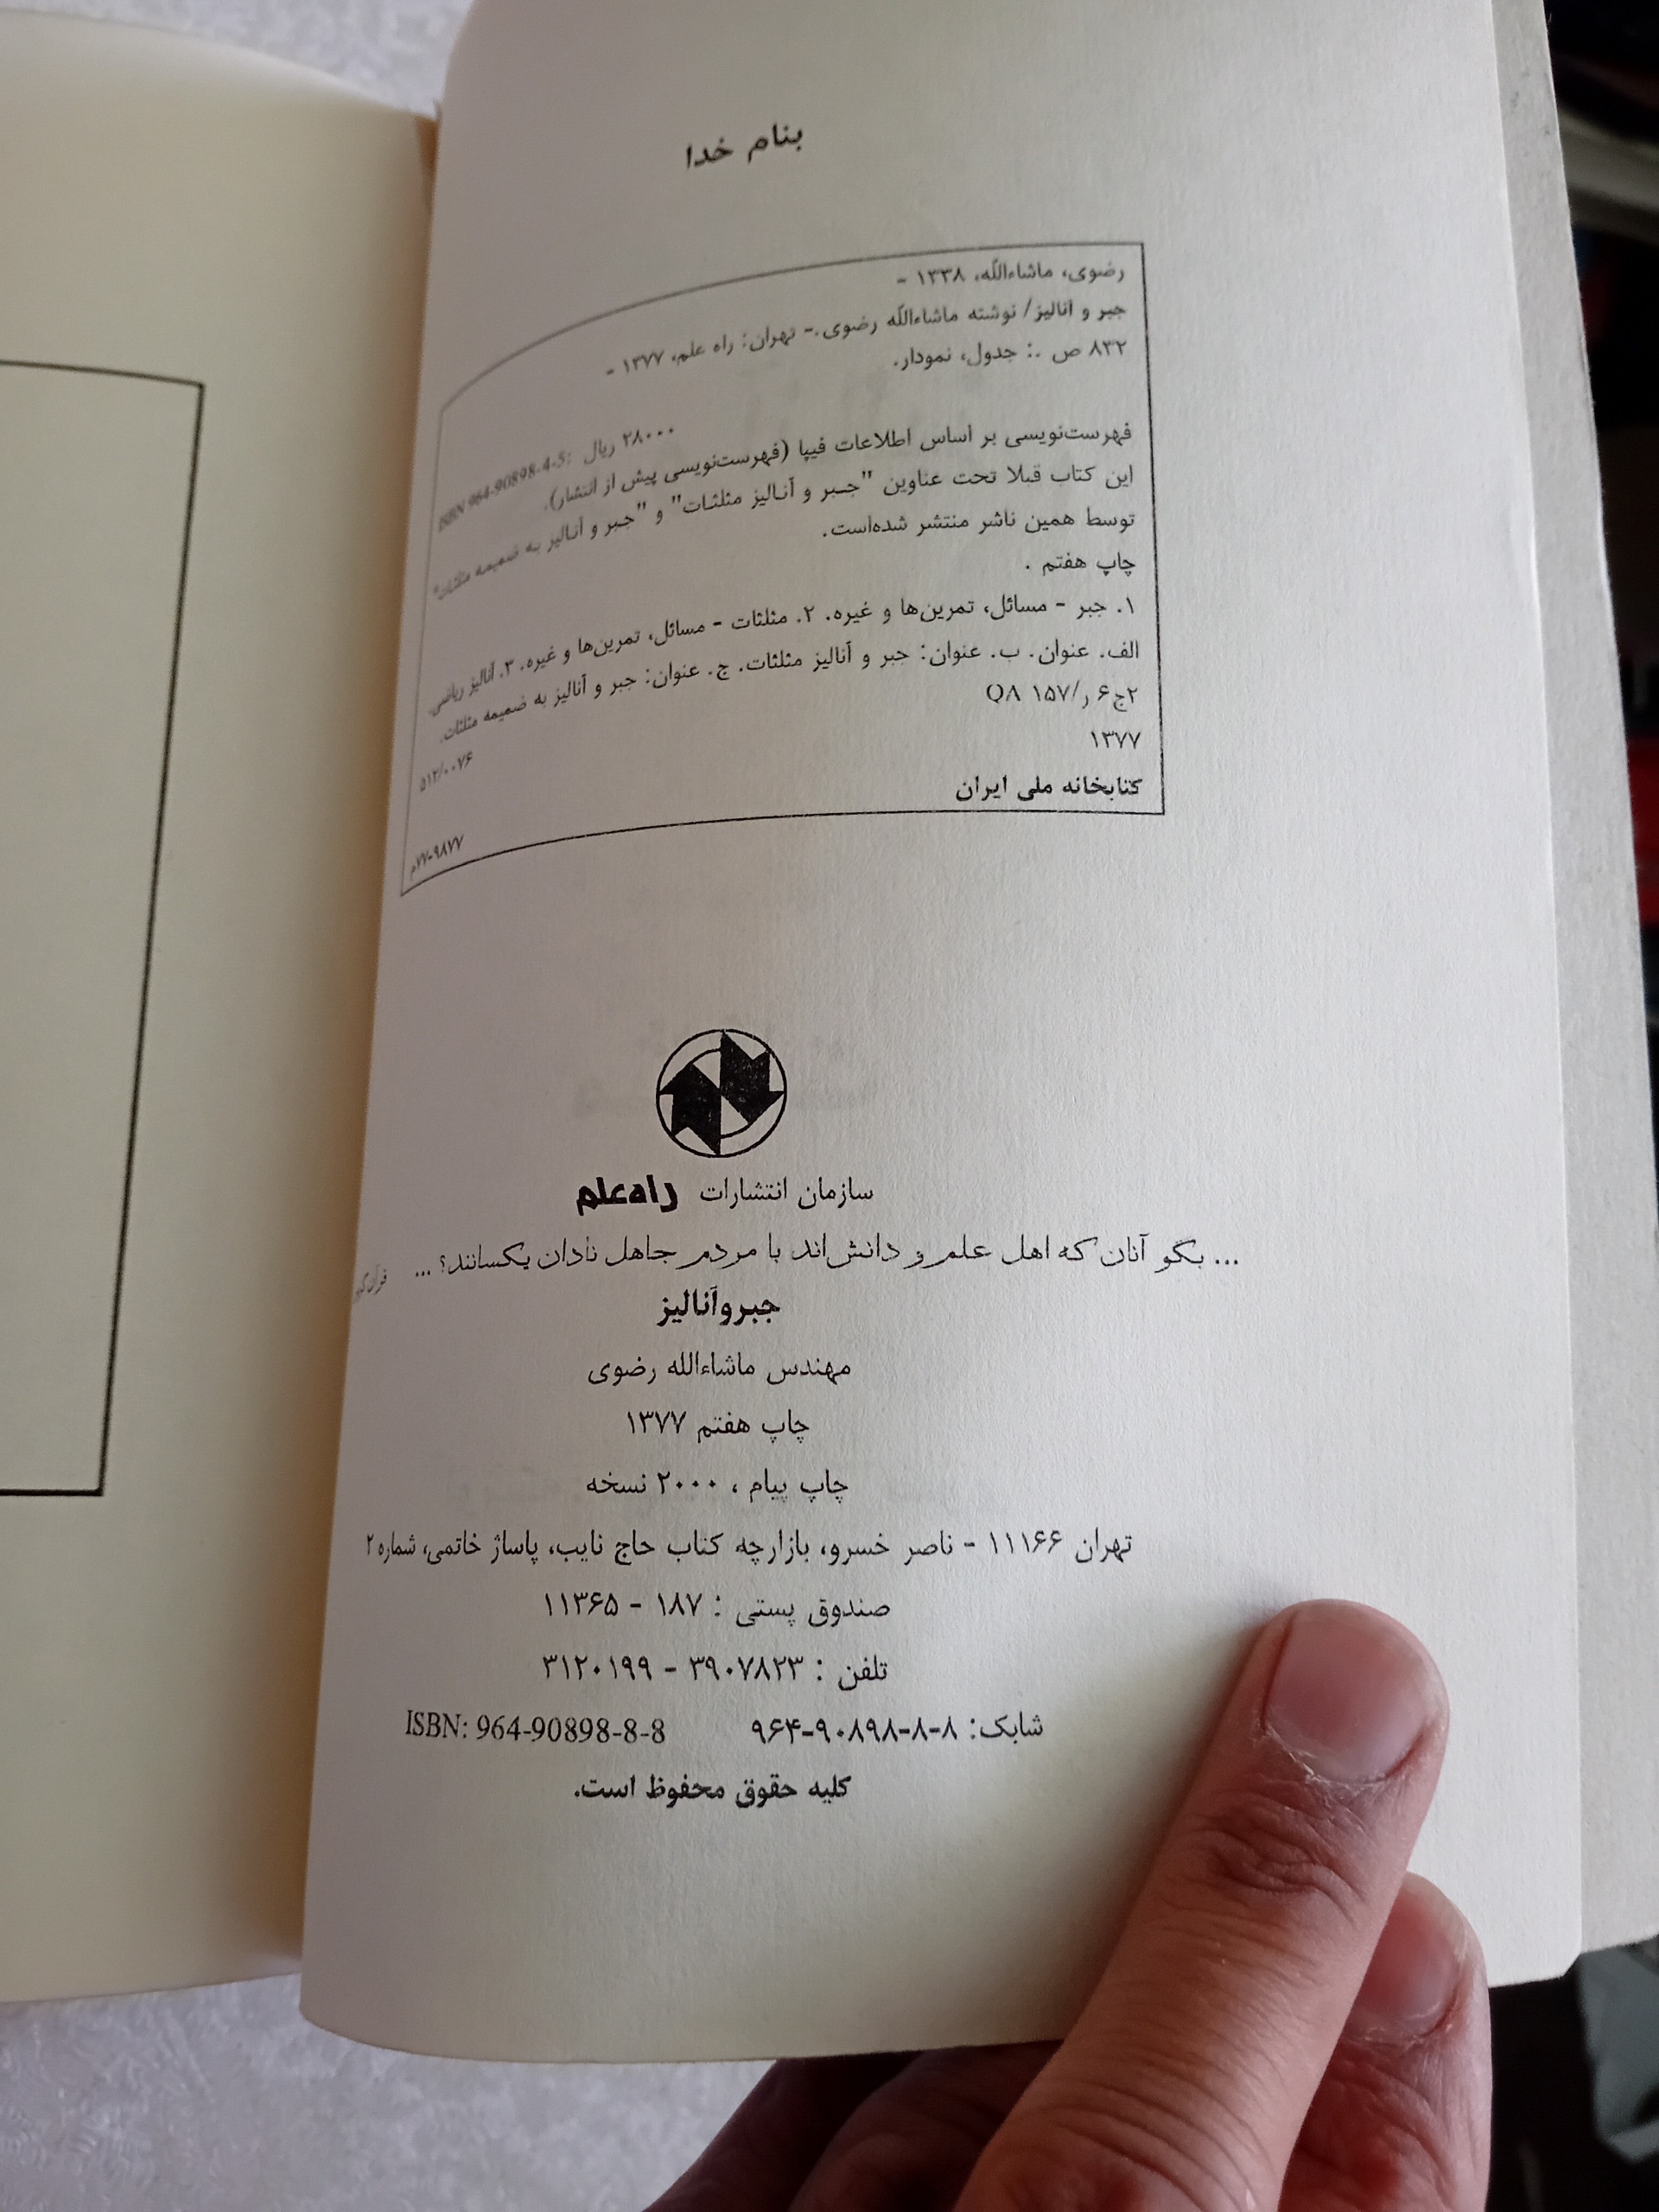 بنام خدا
رضوی، ماشاءاللّه، ۱۳۳۸ -
جبر و آنالیز/ نوشته ماشاءاللّه رضوی.- تهران: راه علم، ۱۳۷۷ -
۸۳۲ ص .: جدول، نمودار.
ISBN 964-90898-4-5: ۲۸۰۰۰ ریال
فهرست‌نویسی بر اساس اطلاعات فیپا (فهرست‌نویسی پیش از انتشار).
این کتاب قبلا تحت عناوین "جبر و آنالیز مثلثات" و "جبر و آنالیز به ضمیمه مثلثات"
توسط همین ناشر منتشر شده‌است.
چاپ هفتم .
۱. جبر - مسائل، تمرین‌ها و غیره. ۲. مثلثات - مسائل، تمرین‌ها و غیره. ۳. آنالیز ریاضی.
الف. عنوان. ب. عنوان: جبر و آنالیز مثلثات. ج. عنوان: جبر و آنالیز به ضمیمه مثلثات.
۲ج۶ر/۱۵۷ QA
۵۱۲/۰۰۷۶
۱۳۷۷
کتابخانه ملی ایران
۷۷-۹۸۷۷م
سازمان انتشارات راه‌علم
... بگو آنان که اهل علم و دانش‌اند با مردم جاهل نادان یکسانند؟ ...
جبروآنالیز
مهندس ماشاءالله رضوی
چاپ هفتم ۱۳۷۷
چاپ پیام ، ۲۰۰۰ نسخه
تهران ۱۱۱۶۶ - ناصر خسرو، بازارچه کتاب حاج نایب، پاساژ خاتمی، شماره ۲
صندوق پستی : ۱۸۷ - ۱۱۳۶۵
تلفن : ۳۹۰۷۸۲۳ - ۳۱۲۰۱۹۹
شابک: ۸-۸-۹۰۸۹۸-۹۶۴ ISBN: 964-90898-8-8
کلیه حقوق محفوظ است.